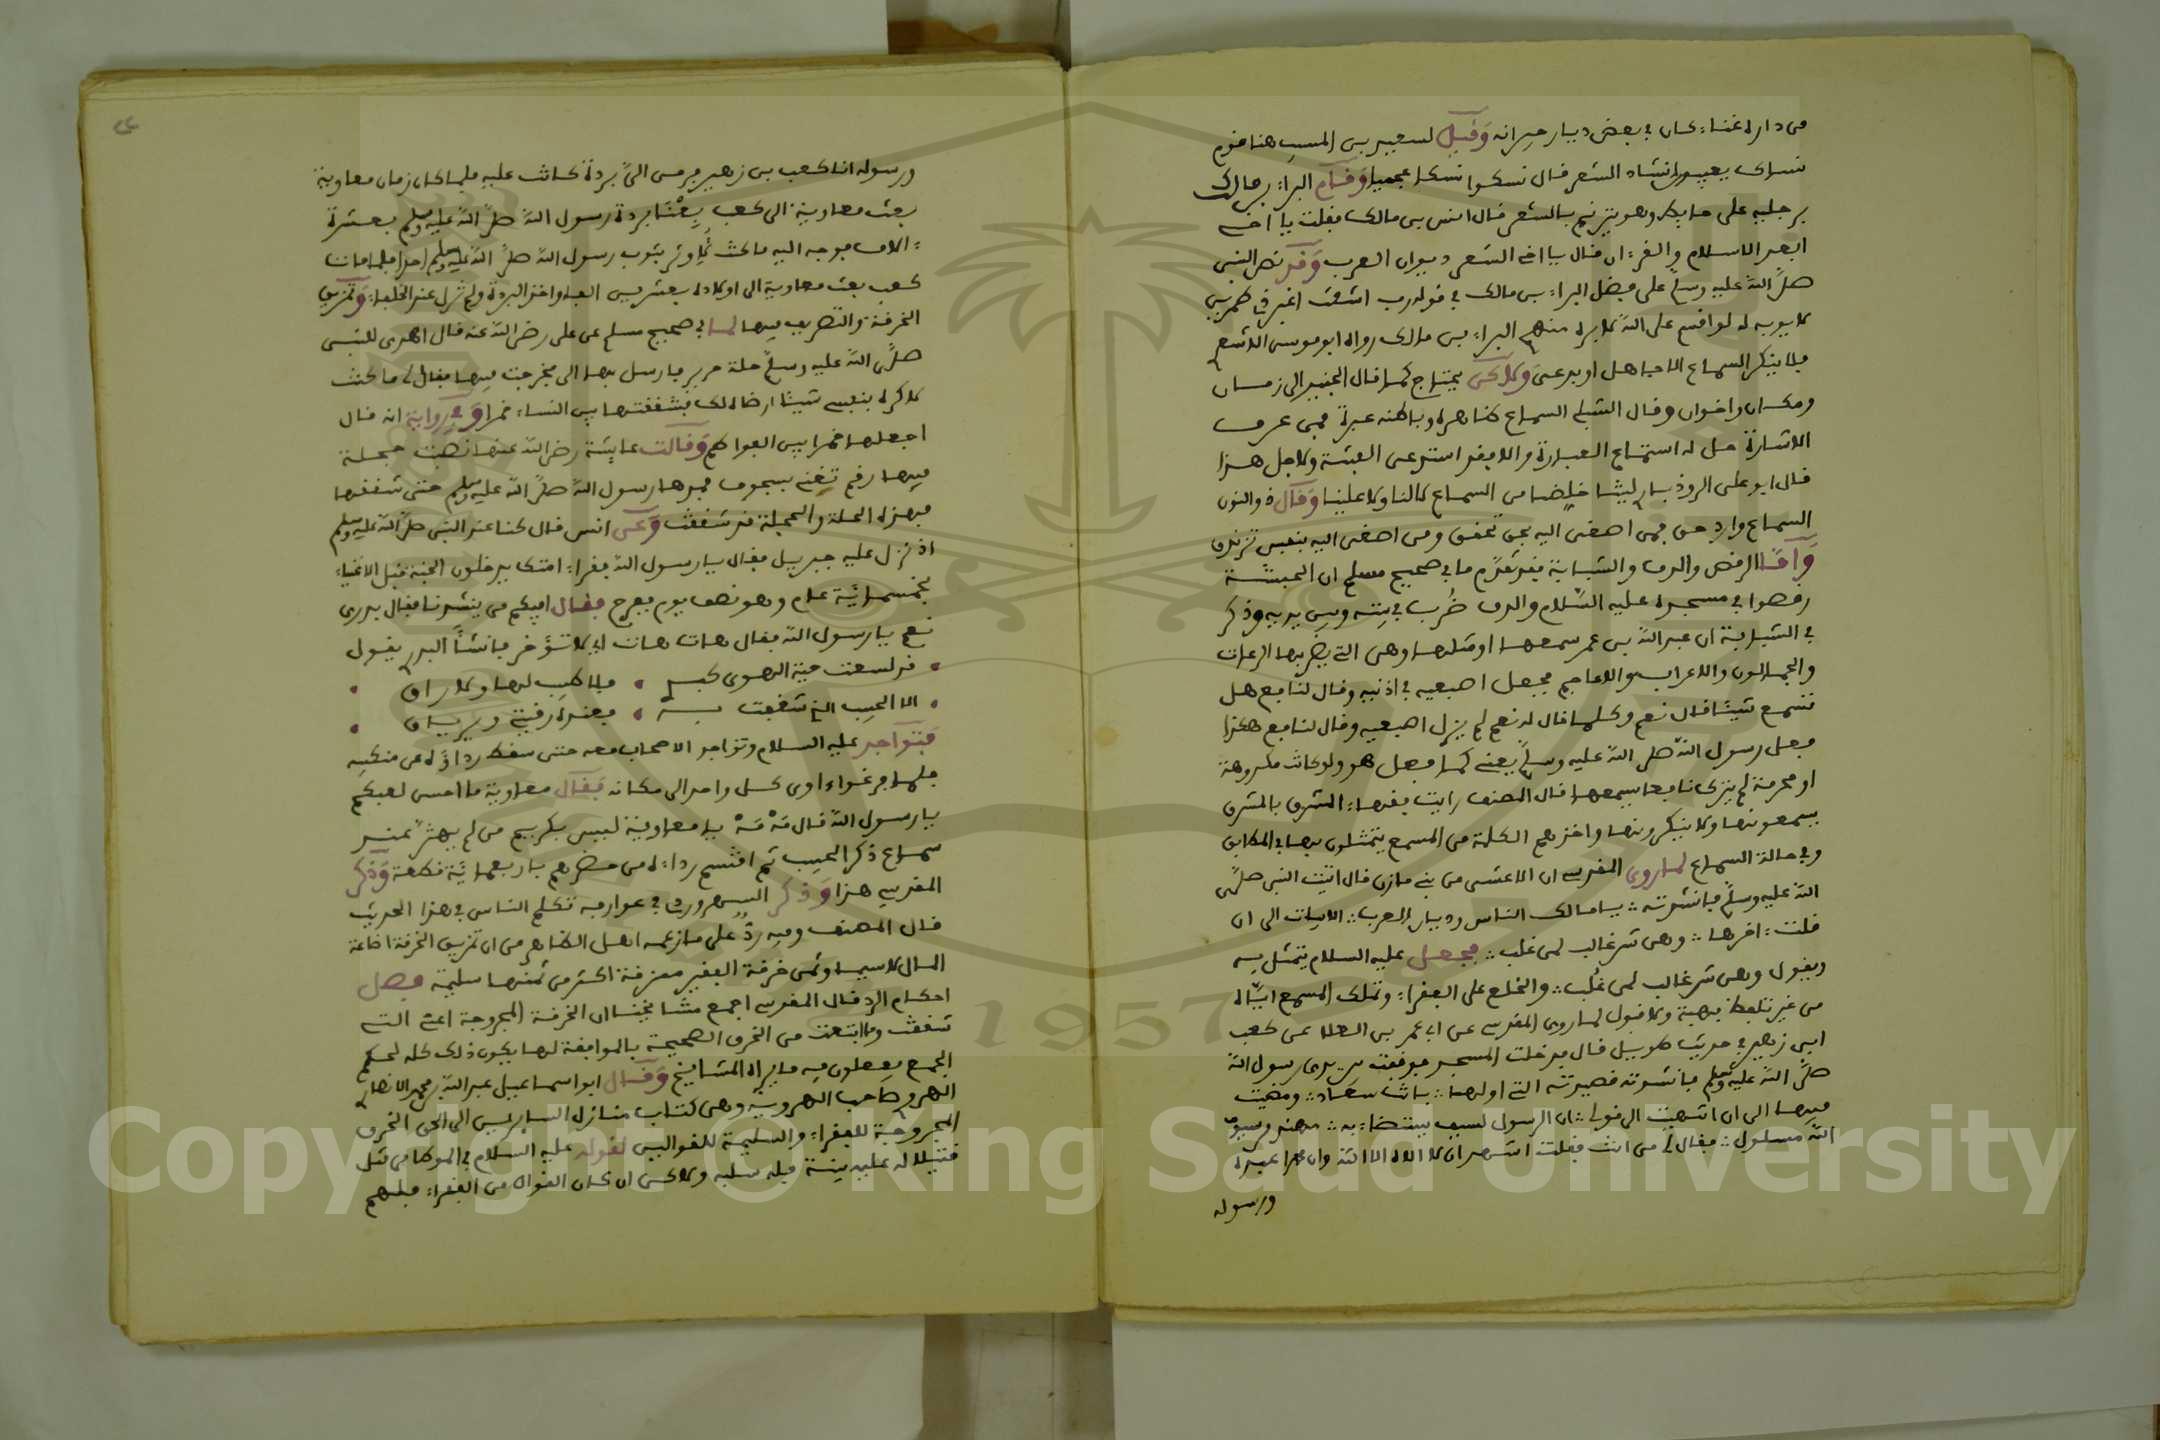 من داره غناء كان في بعض ديار جيرانه وقيل لسعيد بن المسيب هنا قوم
نساك يعيبون انشاد الشعر قال نسكوا نسكا عجميا وقام البراء بن مالك
برجليه على حايط وهو يترنم بالشعر فقال انس بن مالك فقلت يا اخي
ابعد الاسلام والقرءان قال يا اخي الشعر ديوان العرب وقد نص النبي
صلى الله عليه وسلم على فضل البراء بن مالك في قوله رب اشعث اغبر ذي طمرين
لا يوبه له لو اقسم على الله لابره منهم البراء بن مالك رواه ابو موسى الاشعري
فلا ينكر السماع الا جاهل او بدعي ولاكن يحتاج كما قال الجنيد الى زمان
ومكان واخوان وقال الشبلي السماع ظاهره وباطنه عبرة فمن عرف
الاشارة حل له استماع العبارة والا فقد استدعى الفتنة ولاجل هذا
قال ابو على الروذباري ليتنا خلصنا من السماع لا لنا ولا علينا وقال ذو النون
السماع وارد حق فمن اصغى اليه بحق تحقق ومن اصغى اليه بنفس تزندق
واما الرقص والدف والشبابة فقد تقدم ما في صحيح مسلم ان الحبشة
رقصوا في مسجده عليه السلام والدف ضرب في بيته وبين يديه وذكر
في الشبابة ان عبد الله بن عمر سمعها او مثلها وهي التي يضربها الرعات
والجمالون والاعراب والاعاجم فجعل اصبعيه في اذنيه وقال لنافع هل
تسمع شيئا قال نعم وكلما قال له نعم لم يزل اصبعيه وقال لنافع هكذا
فعل رسول الله صلى الله عليه وسلم يعني كما فعل هو ولو كانت مكروهة
او محرمة لم يترك نافعا يسمعها قال المصنف رايت فقهاء الشرق بالمشرق
يسمعونها ولا ينكرونها واخذهم الكلمة من المسمع يتمثلون بها في المكاتب
وفي حالة السماع لما روى المقدسي ان الاعشى من بني مازن قال اتيت النبي صلى
الله عليه وسلم فانشدته يا مالك الناس وديان العرب الابيات الى ان
قلت ءاخرها وهي شر غالب لمن غلب فجعل عليه السلام يتمثل به
ويقول وهي شر غالب لمن غلب والخلع على الفقراء وتملك المسمع اياه
من غير تلفظ بهبة ولا قبول لما روى المقدسي عن ابي عمر بن العلا عن كعب
ابن زهير في حديث طويل قال فدخلت المسجد فوقفت بين يدى رسول الله
صلى الله عليه وسلم فانشدته قصيدتي التي اولها بانت سعاد ومضيت
فيها الى ان انتهيت الى قولي ان الرسول لسيف يستضاء به مهند من سيوف
الله مسلول فقال لي من انت فقلت اشهد ان لا اله الا الله وان محمدا عبده
ورسوله
ورسوله انا كعب بن زهير فرمى الي بردة كانت عليه فلما كان زمان معاوية
بعث معاوية الى كعب بعنا بردة رسول الله صلى الله عليه وسلم بعشرة
ءالاف فوجه اليه ما كنت لاوثر بثوب رسول الله صلى الله عليه وسلم احدا فلما مات
كعب بعث معاوية الى اولاده بعشرين الفا واخذ البردة ولم تزل عند الخلفاء وتمزيق
الخرقة والتصريف فيها لما في صحيح مسلم عن على رضي الله عنه قال اهدى للنبي
صلى الله عليه وسلم حلة حرير فارسل بها الى فخرجت فيها فقال لي ما كنت
لاكره لنفسي شيئا ارضاه لك فشققتها بين النساء خمرا وفي رواية انه قال
اجعلها خمرا بين الفواطم وقالت عايشة رضي الله عنها نصبت حجلة
فيها رقم تغني بسجوف فجرها رسول الله صلى الله عليه وسلم حتى شققها
فهذه الحلة والحجلة قد شققت وعن انس قال كنا عند النبي صلى الله عليه وسلم
اذ نزل عليه جبريل فقال يا رسول الله فقراء امتك يدخلون الجنة قبل الاغنياء
بخمسماية عام وهو نصف يوم ففرح فقال افيكم من ينشدنا فقال بدري
نعم يا رسول الله فقال هات هات اي لا تؤخر فانشأ البدري يقول
قد لسعت حية الهوى كبدي فلا طبيب لها ولا راق
الا الحبيب الذي شغفت به فعنده رقيتي وترياق
فتواجد عليه السلام وتواجد الاصحاب معه حتى سقط رداؤه عن منكبه
فلما فرغوا اوى كل واحد الى مكانه فقال معاوية ما احسن لعبكم
يا رسول الله قال مه مه يا معاوية ليس بكريم من لم يهتز عند
سماع ذكر الحبيب ثم اقتسم رداءه من حضرهم باربعماية قطعة وذكر
المقدسي هذا وذكر السهروردي في عوارفه تكلم الناس في هذا الحديث
قال المصنف وفيه رد على ما زعمه اهل الظاهر من ان تمزيق الخرقة اضاعة
المال لا سيما وثمن خرقة الفقير ممزقة اكثر من ثمنها سليمة فصل
احكام الرد قال المقدسي اجمع مشايخنا ان الخرقة المجروحة اعني التي
شققت وما انبعث من الخرق الصحيحة بالموافقة لها يكون ذلك كله لحكم
الجمع يفعلون فيه ما يراه المشايخ وقال ابو اسماعيل عبد الله بن محمد الانصاري
الهروي صاحب الهروية وهي كتاب منازل السايرين الى الحق الخرق
المجروحة للفقراء والسليمة للقوالين لقوله عليه السلام في الموطا من قتل
قتيلا له عليه بينة فله سلبه ولاكن ان كان القوال من الفقراء فلهم